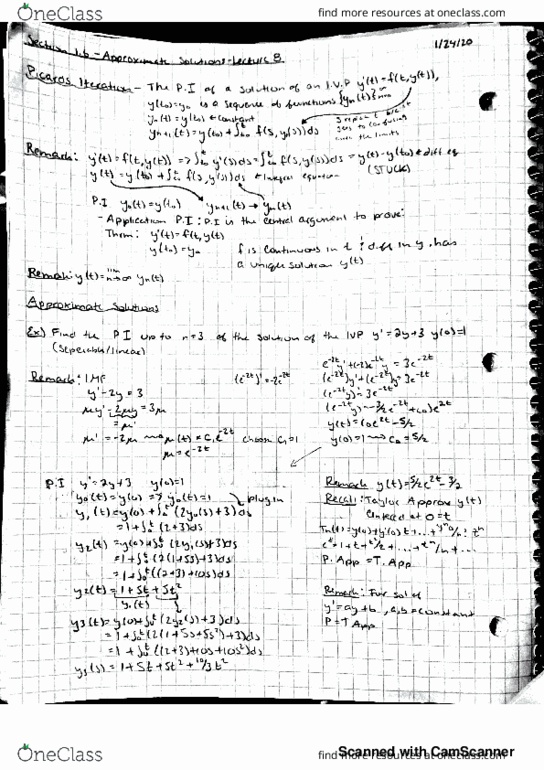 OneClass
find more resources at oneclass.com
Section 1.6 - Approximate Solutions - Lecture 8
1/24/20
Picards Iteration - The P.I of a solution of an I.V.P y'(t) = f(t, y(t)),
y(t₀) = y₀ is a sequence of functions {yₙ(t)}
y₀(t) = y(t₀) ← constant
yₙ₊₁(t) = y(t₀) + ∫ f(s, yₙ(s))ds
over the limits
Remark: y'(t) = f(t, y(t)) => ∫ y'(s)ds = ∫ f(s, y(s))ds = y(t) - y(t₀) ← diff eq
y(t) = y(t₀) + ∫ f(s, y(s))ds ← Integral equation
(STUCK)
P.I y₀(t) = y(t₀) yₙ₊₁(t) → yₙ(t)
- Application P.I: P.I is the central argument to prove:
Thrm: y'(t) = f(t, y(t)
y(t₀) = y₀
f is continuous in t & diff in y, has
a unique solution y(t)
Remark: y(t) = lim n→∞ yₙ(t)
Approximate Solutions
Ex) Find the P.I up to n=3 of the solution of the IVP y' = 2y+3 y(0)=1
(Seperable/linear)
Remark: IMF
y' - 2y = 3
μy' - 2μy = 3μ
= μ'
μ' = -2μ ⟿ μ(t) = C₁e^-2t choose C₁=1
μ = e^-2t
(e^-2t)' = -2e^-2t
e^-2t y' + (-2)e^-2t y = 3e^-2t
(e^-2t)y' + (e^-2t)'y = 3e^-2t
(e^-2t y)' = 3e^-2t
y(0)=1 ⟿ c₀ = 5/2
P.I y' = 2y+3 y(0)=1
y₀(t) = y(0) => y₀(t) = 1
plug in
y₁(t) = y(0) + ∫ (2y₀(s)+3)ds
= 1+∫ (2+3)ds
y₂(t) = y(0)+∫ (2y₁(s)+3)ds
= 1+∫ (2(1+5s)+3)ds
= 1+∫ ((2+3)+10s)ds
y₂(t) = 1+5t+5t²
y₁(t)
y₃(t) = y(0)+∫ (2y₂(s)+3)ds
= 1+∫ (2(1+5s+5s²)+3)ds
= 1+∫ ((2+3)+10s+10s²)ds
y₃(s) = 1+5t+5t²+10/3 t²
Remark y(t) = 5/2 e^2t - 3/2
Recall: Taylor Approx y(t)
Centered at 0=t
P. App = T. App
Remark: For sol of
y' = ay+b, a,b = constant
P = T App
OneClass
find more resources at oneclass.com
Scanned with CamScanner